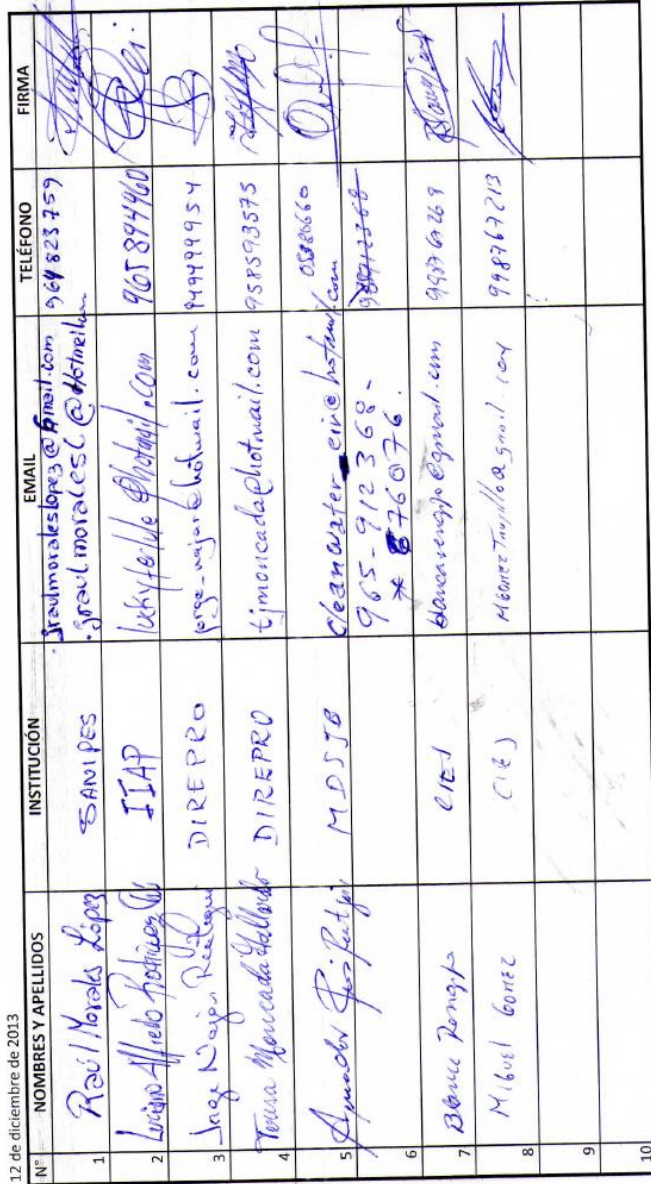 12 de diciembre de 2013
N° NOMBRES Y APELLIDOS INSTITUCIÓN EMAIL TELÉFONO FIRMA
1 Raúl Morales López SANIPES jraulmoraleslopez@gmail.com 964823759
jraulmoralesl@Hotmail
2 Luciano Alfredo Rodríguez IIAP luckyfertile@hotmail.com 965894960
3 Jorge Najar Reátegui DIREPRO jorge-najar@hotmail.com 949499954
4 Teresa Moncada Gallardo DIREPRO tjmoncada@hotmail.com 958593575
5 Amador MDSJB cleanwater_eir@hotmail.com
965-912368-
6 * 876076.
7 Blanca Rengifo CIES 998767269
8 Miguel Gomez CIES 998767213
9
10